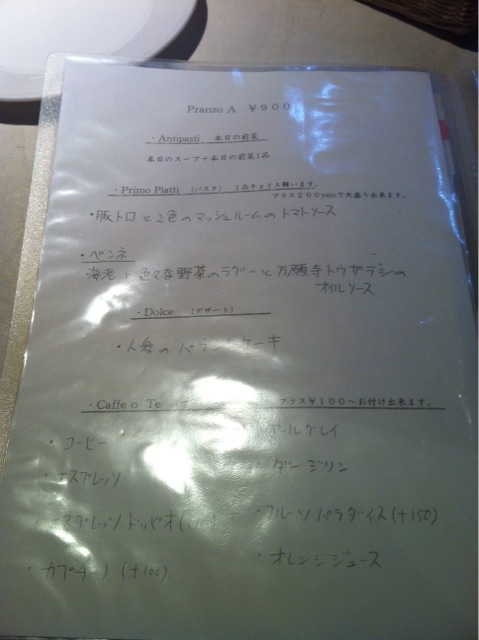 Pranzo A ¥900
・Antipasti 本日の前菜
本日のスープ+本日の前菜1品
・Primo Piatti (パスタ) 1品チョイス願います。
プラス200yenで大盛り出来ます。
・豚トロと2色のマッシュルームのトマトソース
・ペンネ
海老と色々な野菜のラグーと万願寺トウガラシの
オイルソース
・Dolce (デザート)
・人参のパウンドケーキ
・Caffe o Te プラス¥100〜お付け出来ます。
・コーヒー
アールグレイ
・エスプレッソ
・ダージリン
エスプレッソドッピオ
・フルーツパラダイス(+150)
・カプチーノ (+100)
・オレンジジュース